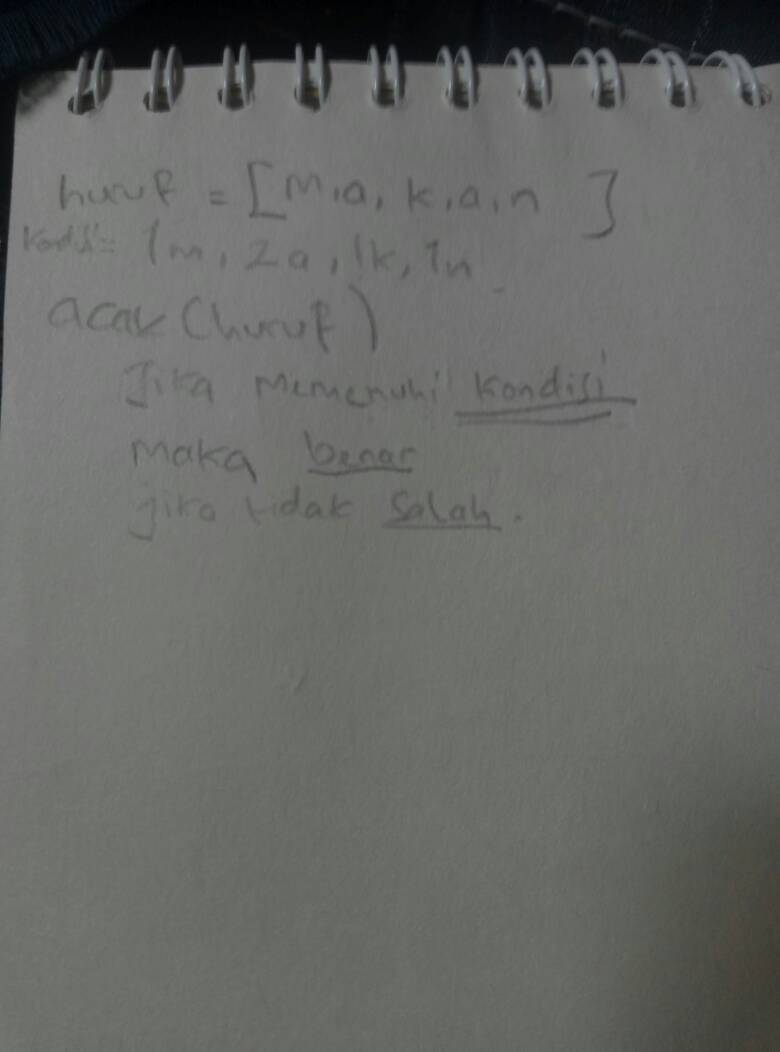 huruf = [m, a, k, a, n ]
kodsi = 1m, 2a, 1k, 1n
acak (huruf)
Jika memenuhi kondisi
maka benar
jika tidak salah.